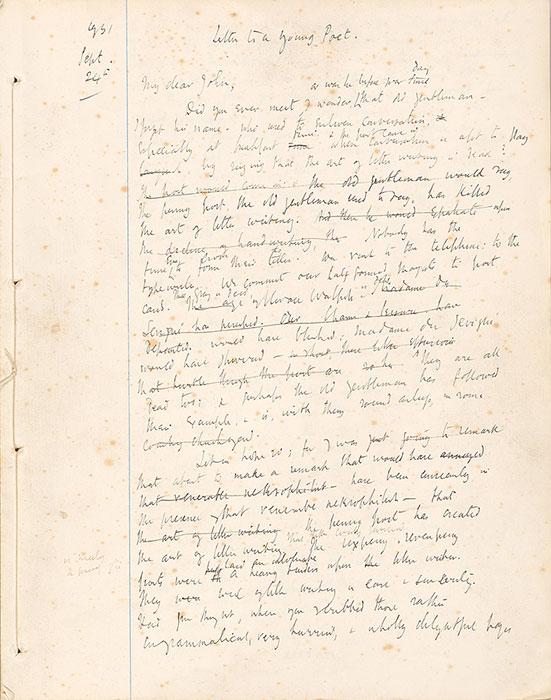 1931
Sept.
24th
Letter to a Young Poet.
My dear John,
or was he before your day
time
Did you ever meet, I wonder, that old gentleman -
I forget his name - who used to enliven conversation,
especially at breakfast when the post came in
when conversation is apt to flag
by saying that the art of letter writing is dead?
The post would come in: & the old gentleman would say,
The penny post, the old gentleman used to say, has killed
the art of letter writing. And then he would expatiate upon
the decline of handwriting, the Nobody has the
time to form their letters. We rush to the telephone: to the
typewriter. We commit our half formed thoughts to post
cards. The age of Horace Walpole Madame de
Sévigné has perished. Our charm & leisure have
departed. would have blushed. Madame de Sevigne
would have shivered - in short, these letter
that hurtle through the post are so
dead too: & perhaps the old gentleman has followed
their example, & is, with them sound asleep, in some
country churchyard.
Let us hope so; for I was just going to remark
that about to make a remark that would have annoyed
that venerable nekrophilist - have been unseemly in
the presence of that venerable nekrophilist - that
the art of letter writing the penny post has created
the art of letter writing. The sixpenny, sevenpenny
posts were laid an
a heavy burden upon the letter writer.
They
Had you thought, when you scribbled those rather
ungrammatical, very hurried, & wholly delightful pages